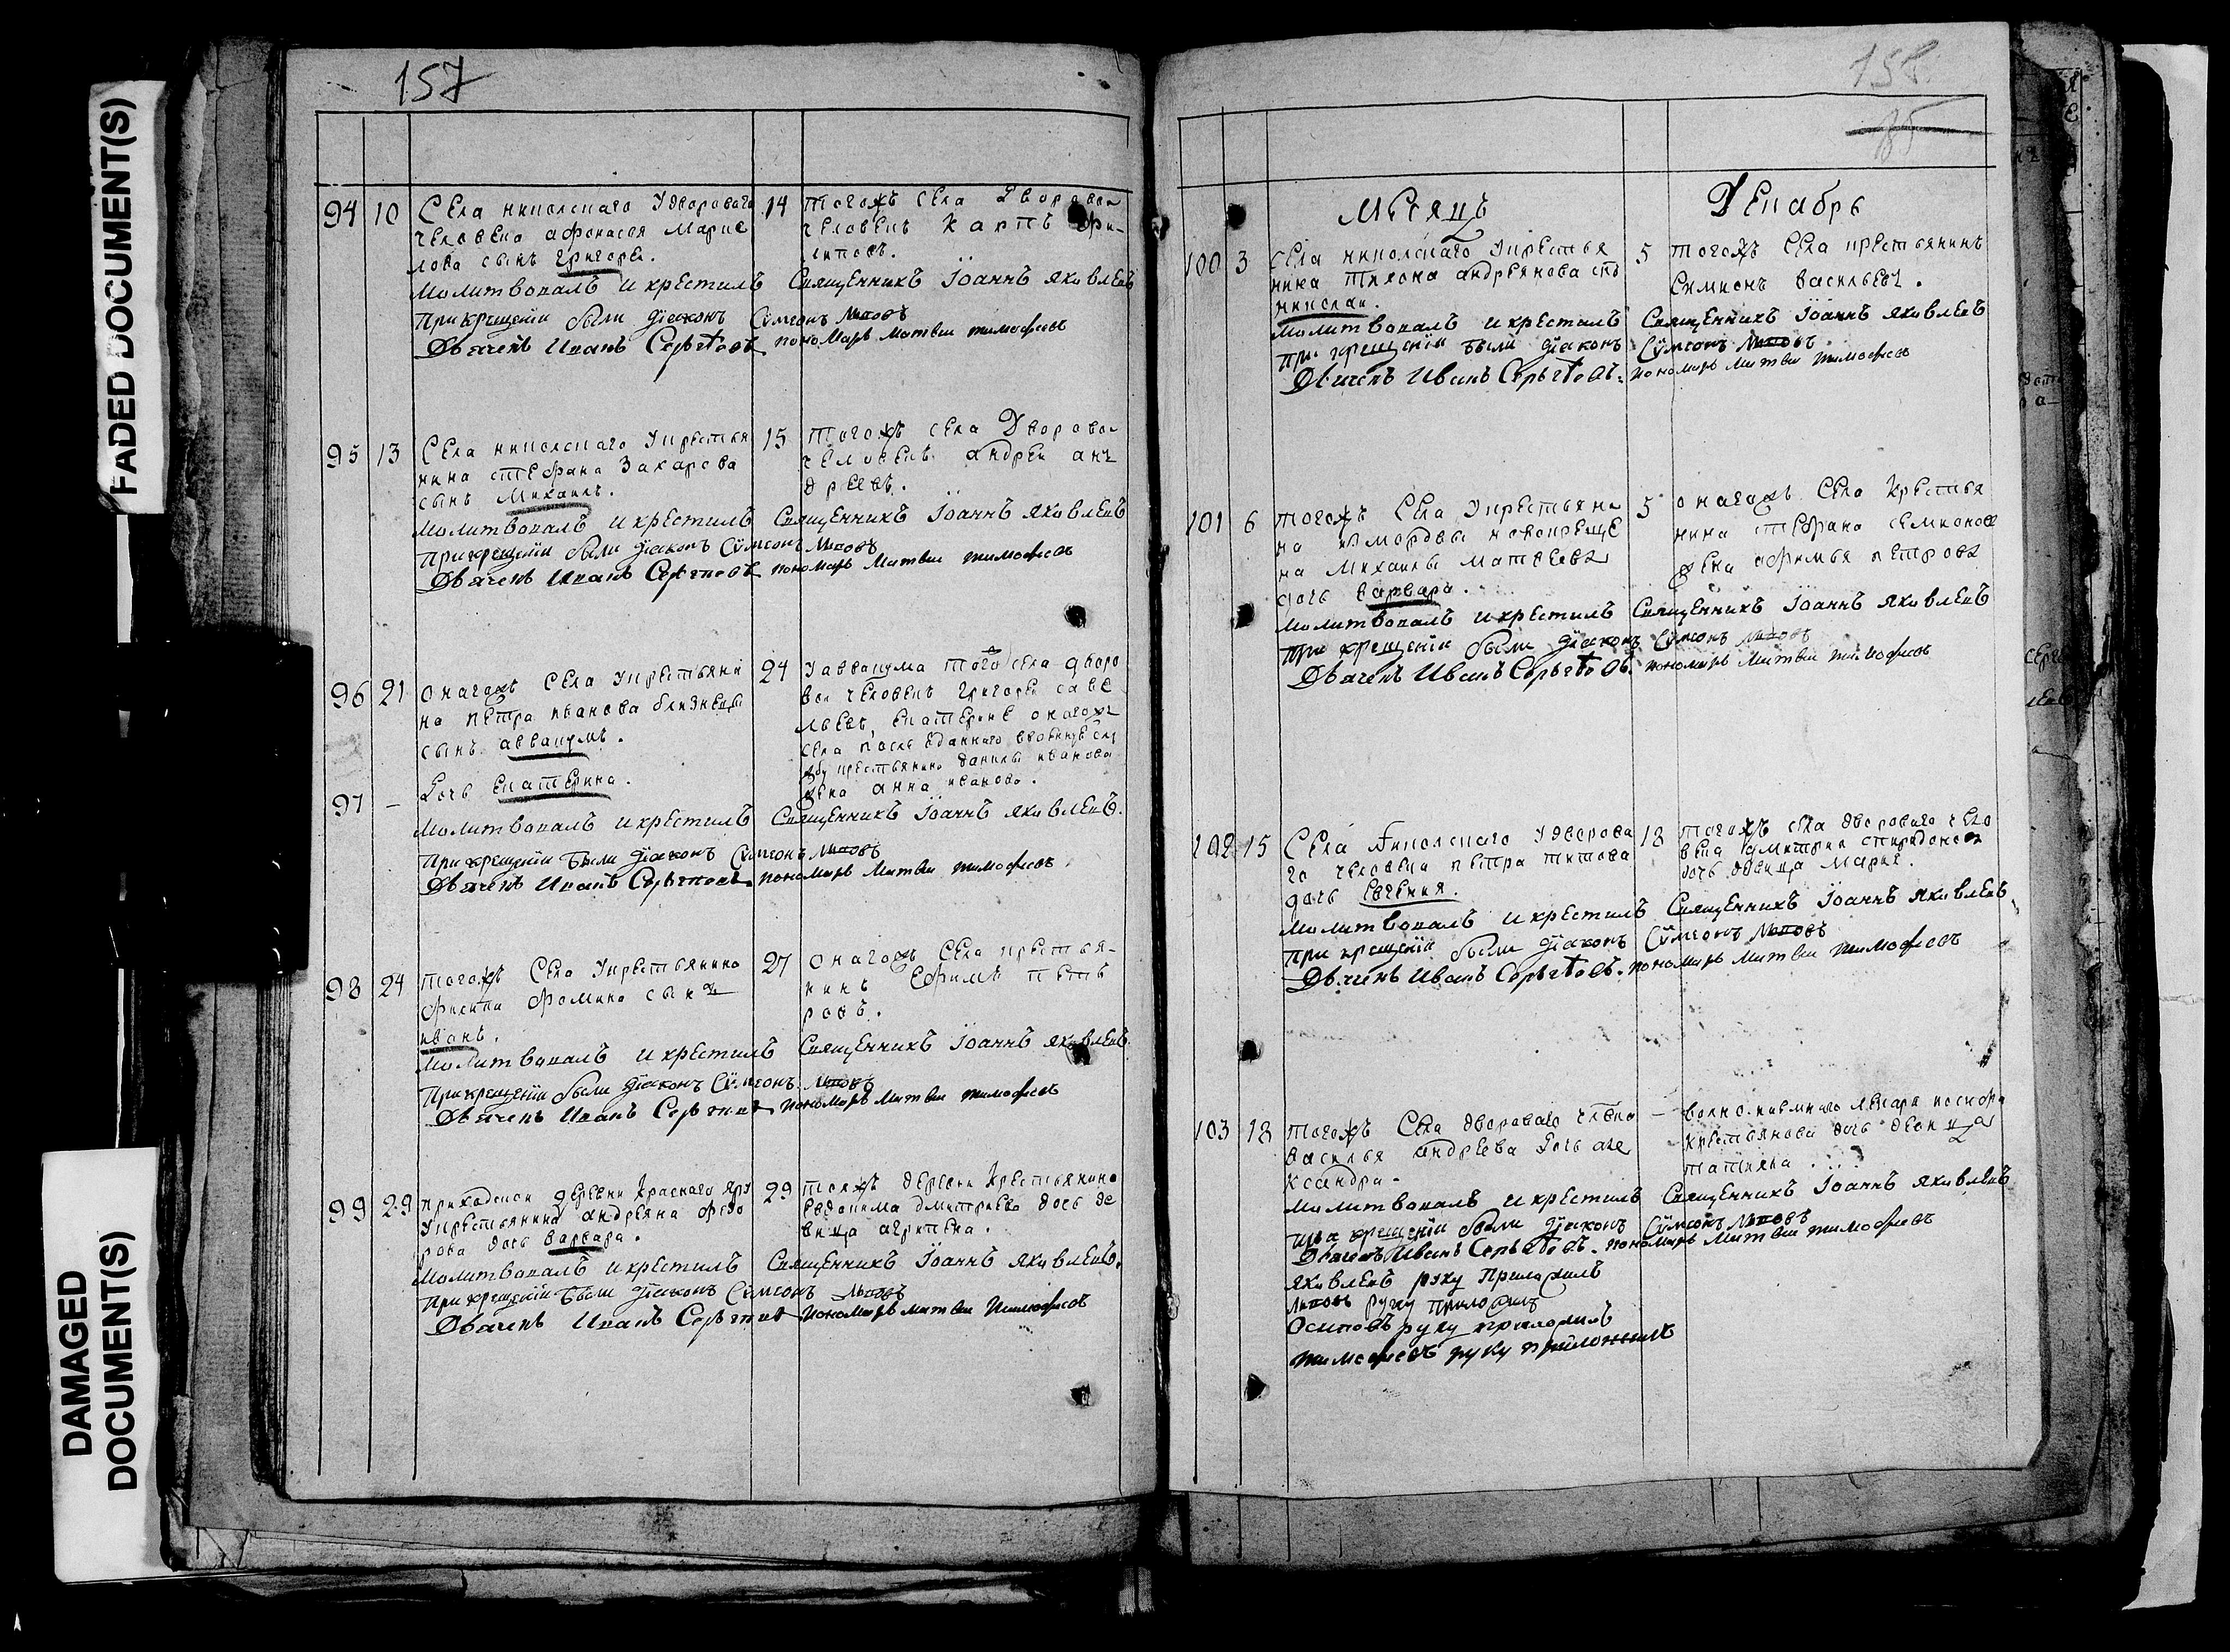 FADED DOCUMENT(S)
DAMAGED
DOCUMENT(S)
157
94 10 Села никольскаго У двороваго
человека афонасея Марке
лова сынъ григореи.
14 тогожъ села Дворовои
человекъ Карпъ Фи-
липовъ.
Молитвовалъ и крестилъ Священникъ Iоаннъ Яковлевъ
При крещенiи были дiаконъ Сѵмеонъ
Дьячекъ Иванъ пономарь Матвеи тимофеев
95 13 Села никольскаго У крестья
нина стефана Захарова
сынъ Михаилъ.
15 Тогожъ села Дворовои
человекъ андреи ан
дреевъ.
Молитвовалъ и крестилъ Священникъ Iоаннъ Яковлевъ
При крещенiи были дiаконъ Сѵмеонъ
Дьячекъ Иванъ пономарь Матвеи тимофеевъ
96 21 Онагожъ Села У крестьяни
на петра иванова близнецы
сынъ аввакумъ.
97 – Дочь екатерина.
24 У аввакума того села дворо
вои человекъ григореи саве
льевъ, екатерине онагожъ
села после
крестьянина данилы иванова
жена анна иванова.
Молитвовалъ и крестилъ Священникъ Iоаннъ Яковлевъ.
При крещенiи были дiаконъ Сѵмеонъ
Дьячекъ Иванъ пономарь Матвеи тимофеевъ
98 24 Тогожъ Села У крестьянина
филипа фомина сынъ
иванъ.
27 онагожъ Села крестья-
нинъ Ефимъ пет
ровъ.
Молитвовалъ и крестилъ Священникъ Iоаннъ Яковлевъ.
При крещенiи были дiаконъ Сѵмеонъ
Дьячекъ Иванъ пономарь Матвеи тимофеев
99 29 Приходскои деревни Краснаго яру
У крестьянина андреяна федо
рова дочь варвара.
29 тояжъ деревни Крестьянина
евдокима дмитриева дочь де
вица агрипена.
Молитвовалъ и крестилъ Священникъ Iоаннъ Яковлевъ.
При крещенiи были дiаконъ Сѵмеонъ
Дьячекъ Иванъ пономарь матвеи тимофеевъ
158
85
Месяцъ Декабрь
100 3 Села никольскаго У крестья
нина тихона андреянова снъ
николаи.
5 тогожъ Села крестьянинъ
Симионъ васильевъ.
Молитвовалъ и крестилъ Священникъ Iоаннъ Яковлевъ
При крещенiи были дiаконъ Сѵмеонъ
Дьячекъ Иванъ пономарь Матвеи тимофеев
101 6 тогожъ Села У крестьяни
на мордвы новокреще
на Михаилы матвеева
дочь варвара.
5 онагожъ Села Крестья
нина стефана семионова
жена афимья петрова
Молитвовалъ и крестилъ Священникъ Iоаннъ Яковлевъ
При крещенiи были дiаконъ Сѵмеонъ
Дьячекъ Иванъ пономарь Матвеи тимофеев
102 15 Села Никольскаго У дворова
го человека петра титова
дочь Евгения.
18 тогожъ села двороваго чело
века дмитрия спиридонова
дочь девица Мария.
Молитвовалъ и крестилъ Священникъ Iоаннъ Яковлевъ
При крещенiи были дiаконъ Сѵмеонъ
Дьячекъ Иванъ пономарь Матвеи тимофеевъ
103 18 тогожъ Села двороваго члвка
василья андреева дочь але
ксандра.
– лекаря
дочь девица
татияна
Молитвовалъ и крестилъ Священникъ Iоаннъ Яковлевъ
При крещенiи были дiаконъ Сѵмеонъ
Дьячекъ Иванъ пономарь Матвеи тимофеевъ
Яковлевъ руку Приложилъ
руку приложилъ
Осиповъ руку приложилъ
тимофеевъ руку приложилъ